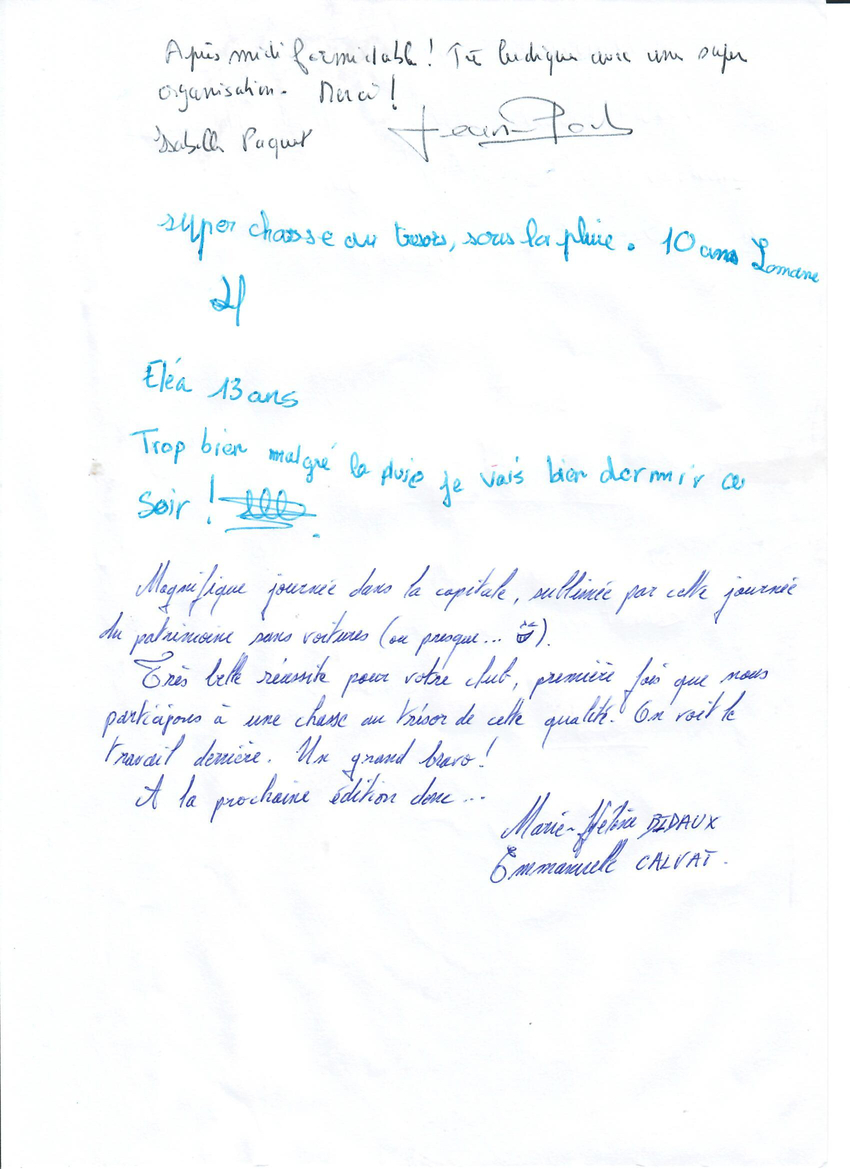 Après midi formidable ! Très ludique avec une super
organisation. Merci !
Isabelle Paquet Jean-Paul
super chasse au tresors, sous la pluie. 10 ans Lomane
Eléa 13 ans
Trop bien malgré la pluie je vais bien dormir ce
soir !
Magnifique journée dans la capitale, sublimée par cette journée
du patrimoine sans voitures (ou presque... ).
Très belle réussite pour votre club, première fois que nous
participons à une chasse au trésor de cette qualité. On voit le
travail derrière. Un grand bravo !
A la prochaine édition donc...
Marie-Hélène BIDAUX
Emmanuelle CALVAT.